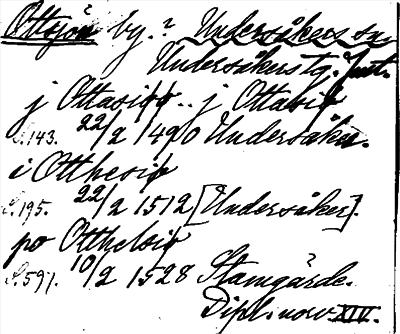 Ottsjön by.? Undersåkers sn.
Undersåkers tg. Jmt.
j Ottasiø .. j Ottasiø
S.143. 22/2 1490 Undersåker.
i Otthesiø
S.195. 22/2 1512 [Undersåker].
po Otthelsiø
S.597. 10/2 1528 Stamgärde.
Dipl. norv XIV.